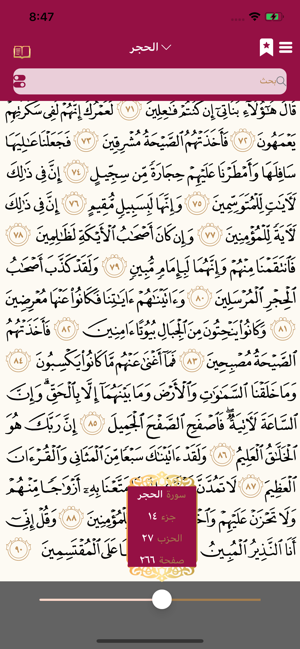 8:47
الحجر
بحث
قَالَ هَٰٓؤُلَآءِ بَنَاتِىٓ إِن كُنتُمْ فَٰعِلِينَ ٧١ لَعَمْرُكَ إِنَّهُمْ لَفِى سَكْرَتِهِمْ
يَعْمَهُونَ ٧٢ فَأَخَذَتْهُمُ ٱلصَّيْحَةُ مُشْرِقِينَ ٧٣ فَجَعَلْنَا عَٰلِيَهَا
سَافِلَهَا وَأَمْطَرْنَا عَلَيْهِمْ حِجَارَةً مِّن سِجِّيلٍ ٧٤ إِنَّ فِى ذَٰلِكَ
لَءَايَٰتٍ لِّلْمُتَوَسِّمِينَ ٧٥ وَإِنَّهَا لَبِسَبِيلٍ مُّقِيمٍ ٧٦ إِنَّ فِى ذَٰلِكَ
لَءَايَةً لِّلْمُؤْمِنِينَ ٧٧ وَإِن كَانَ أَصْحَٰبُ ٱلْأَيْكَةِ لَظَٰلِمِينَ ٧٨
فَٱنتَقَمْنَا مِنْهُمْ وَإِنَّهُمَا لَبِإِمَامٍ مُّبِينٍ ٧٩ وَلَقَدْ كَذَّبَ أَصْحَٰبُ
ٱلْحِجْرِ ٱلْمُرْسَلِينَ ٨٠ وَءَاتَيْنَٰهُمْ ءَايَٰتِنَا فَكَانُوا۟ عَنْهَا مُعْرِضِينَ
٨١ وَكَانُوا۟ يَنْحِتُونَ مِنَ ٱلْجِبَالِ بُيُوتًا ءَامِنِينَ ٨٢ فَأَخَذَتْهُمُ
ٱلصَّيْحَةُ مُصْبِحِينَ ٨٣ فَمَآ أَغْنَىٰ عَنْهُم مَّا كَانُوا۟ يَكْسِبُونَ ٨٤
وَمَا خَلَقْنَا ٱلسَّمَٰوَٰتِ وَٱلْأَرْضَ وَمَا بَيْنَهُمَآ إِلَّا بِٱلْحَقِّ ۗ وَإِنَّ
ٱلسَّاعَةَ لَءَاتِيَةٌ ۖ فَٱصْفَحِ ٱلصَّفْحَ ٱلْجَمِيلَ ٨٥ إِنَّ رَبَّكَ هُوَ
ٱلْخَلَّٰقُ ٱلْعَلِيمُ ٨٦ وَلَقَدْ ءَاتَيْنَٰكَ سَبْعًا مِّنَ ٱلْمَثَانِى وَٱلْقُرْءَانَ
ٱلْعَظِيمَ ٨٧ لَا تَمُدَّنَّ مَتَّعْنَا بِهِۦٓ أَزْوَٰجًا مِّنْهُمْ
وَلَا تَحْزَنْ عَلَيْهِمْ ٨٨ وَقُلْ إِنِّىٓ
أَنَا ٱلنَّذِيرُ ٱلْمُبِينُ عَلَى ٱلْمُقْتَسِمِينَ ٩٠
سورة الحجر
جزء ١٤
الحزب ٢٧
صفحة ٢٦٦